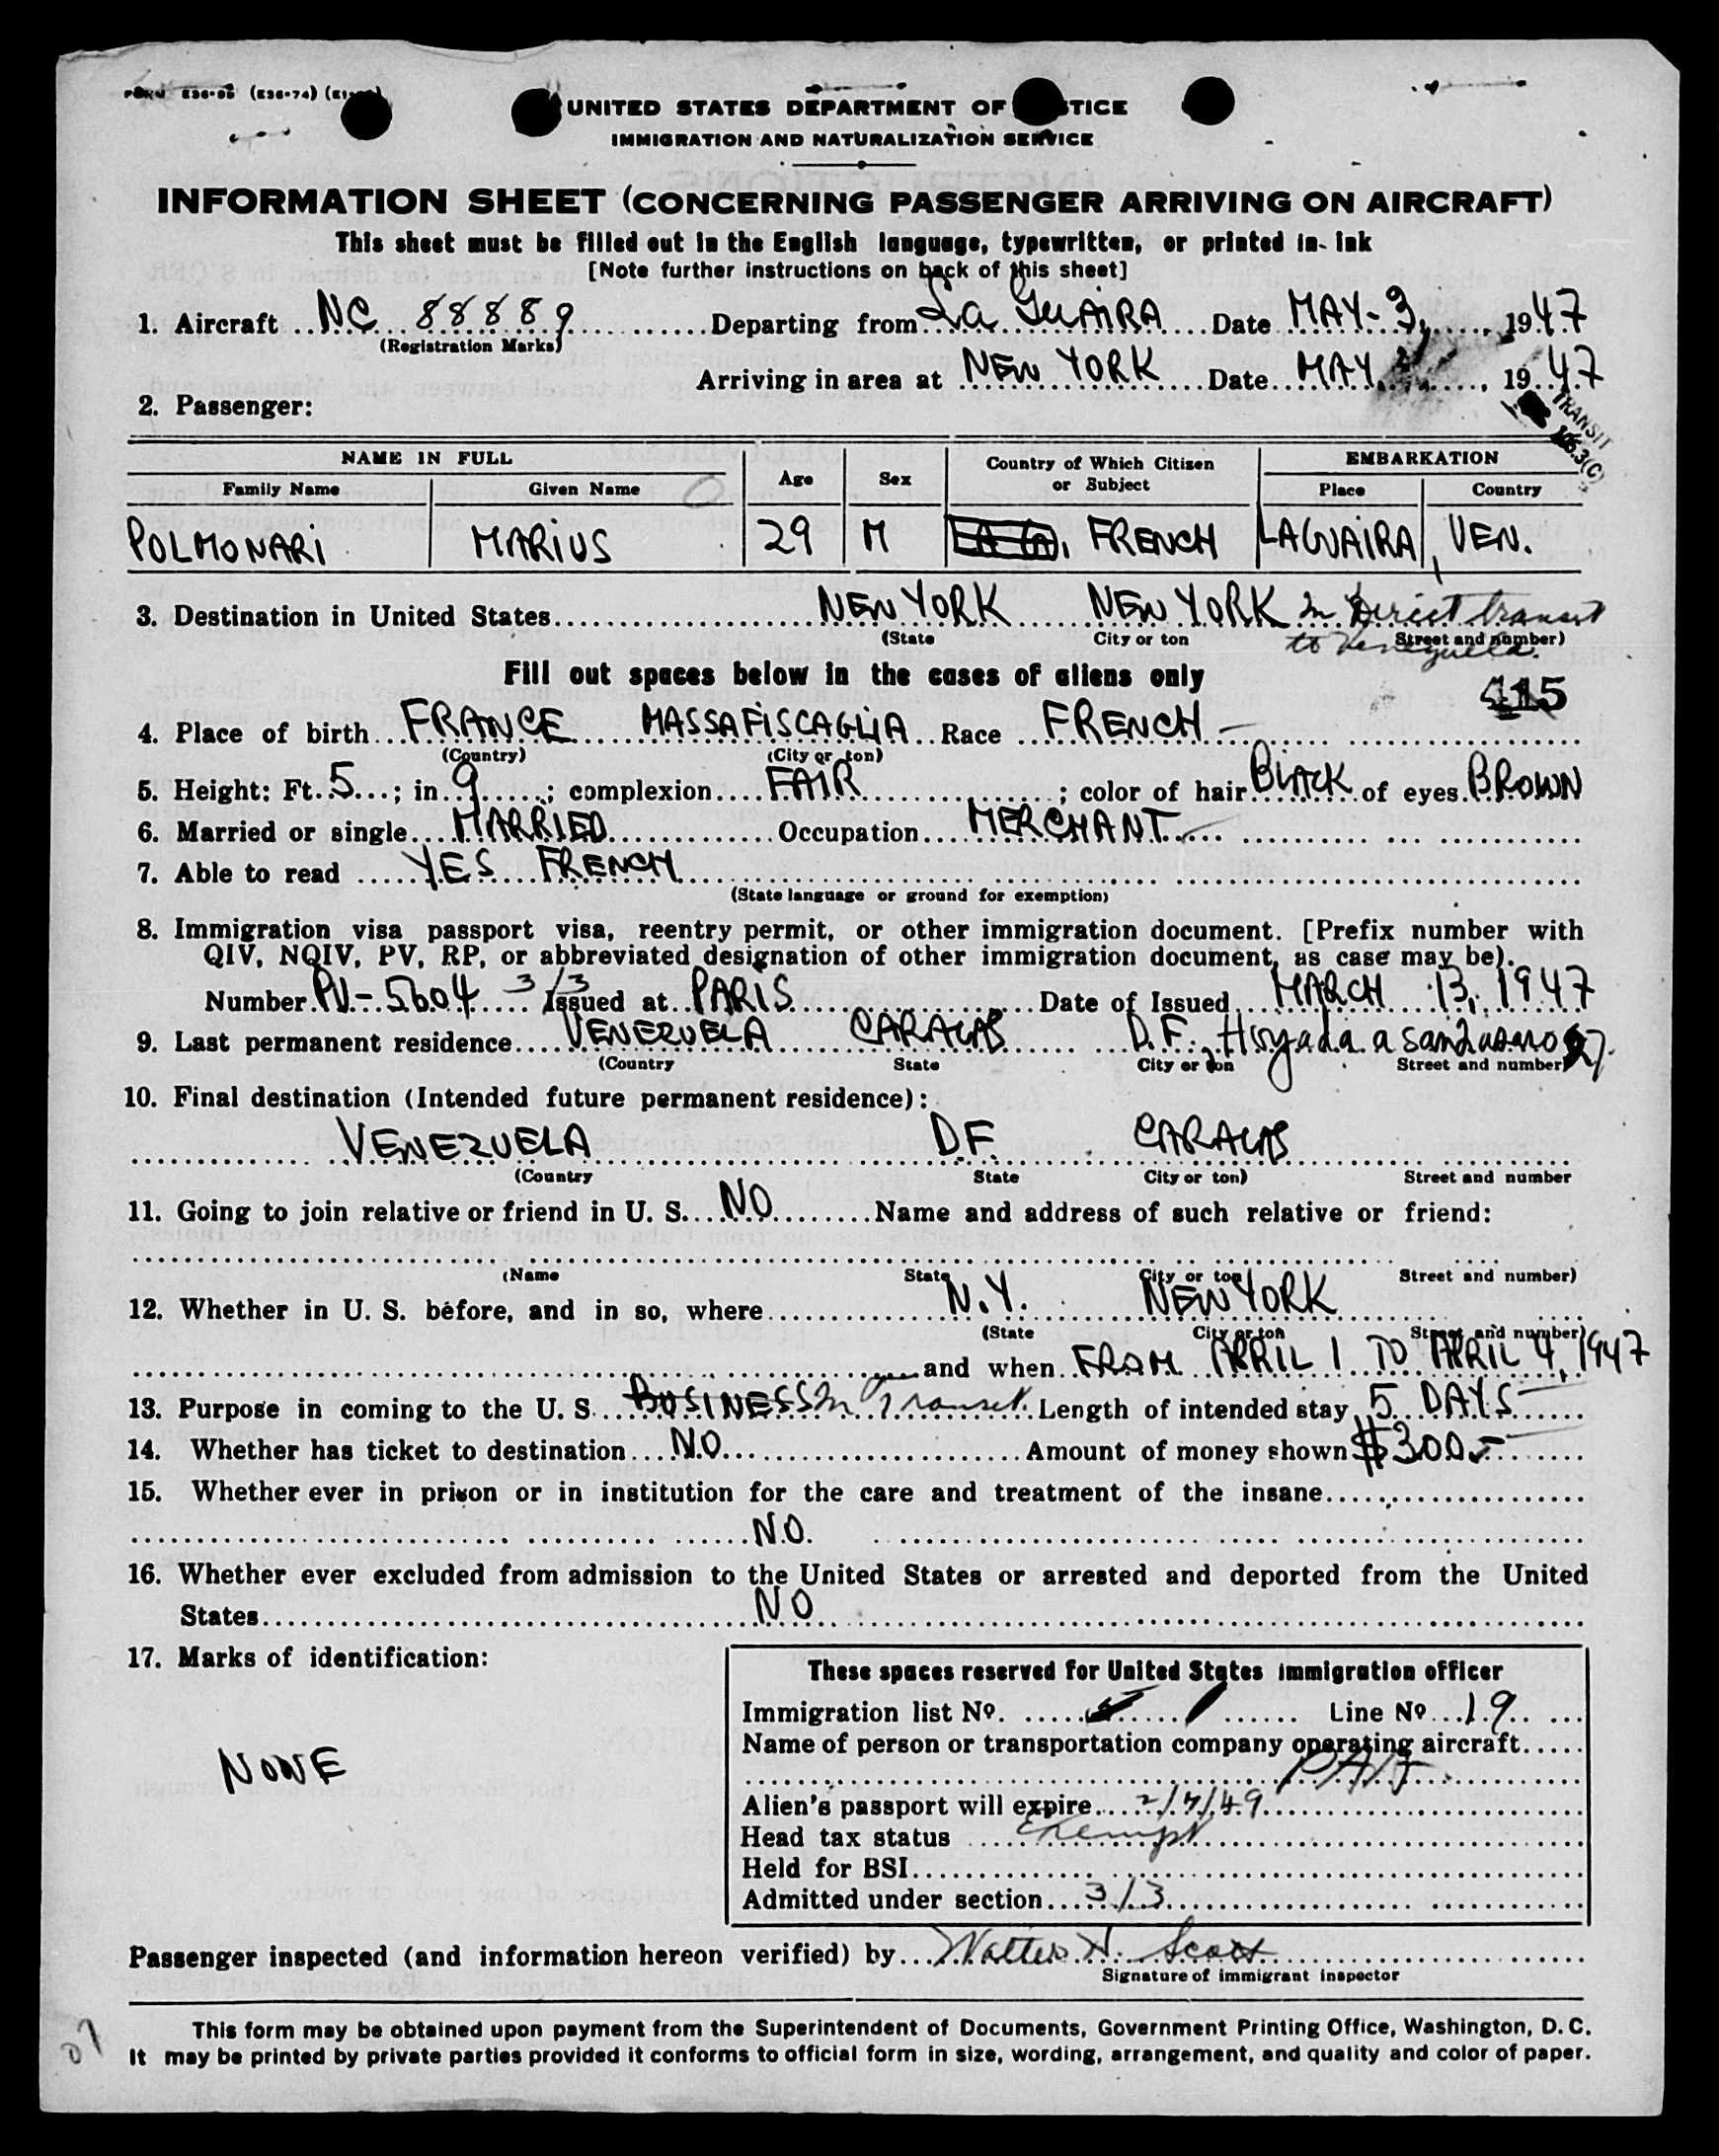 UNITED STATES DEPARTMENT OF TICE
IMMIGRATION AND NATURALIZATION SERVICE
INFORMATION SHEET (CONCERNING PASSENGER ARRIVING ON AIRCRAFT)
This sheet must be filled out in the English language, typewritten, or printed in ink
[Note further instructions on back of this sheet]
1. Aircraft NC 88889 Departing from La GUAIRA Date MAY-3, 1947
(Registration Marks)
Arriving in area at NEW YORK Date MAY 1947
2. Passenger:
TRANSIT
NAME IN FULL Age Sex Country of Which Citizen or Subject EMBARKATION
Family Name Given Name Place Country
POLMONARI MARIUS 29 M FRENCH LAGUAIRA, VEN.
3. Destination in United States NEW YORK NEW YORK In Direct transit
(State City or ton Street and number)
to Venezuela.
Fill out spaces below in the cases of aliens only
415
4. Place of birth FRANCE MASSAFISCAGLIA Race FRENCH -
(Country) (City or ton)
5. Height: Ft. 5; in 9; complexion FAIR; color of hair BLACK of eyes BROWN
6. Married or single MARRIED Occupation MERCHANT
7. Able to read YES FRENCH
(State language or ground for exemption)
8. Immigration visa passport visa, reentry permit, or other immigration document. [Prefix number with
QIV, NQIV, PV, RP, or abbreviated designation of other immigration document, as case may be).
Number PV-5604 3/3 Issued at PARIS Date of Issued MARCH 13, 1947
9. Last permanent residence VENEZUELA CARACAS D.F.
(Country State City or ton Street and number)
10. Final destination (Intended future permanent residence):
VENEZUELA D.F. CARACAS
(Country State City or ton) Street and number
11. Going to join relative or friend in U. S. NO Name and address of such relative or friend:
(Name State City or ton Street and number)
12. Whether in U. S. before, and in so, where N.Y. NEW YORK
(State City or ton Street and number)
and when FROM APRIL 1 TO APRIL 4, 1947
13. Purpose in coming to the U. S. BUSINESS In Transit. Length of intended stay 5 DAYS
14. Whether has ticket to destination NO Amount of money shown $300.-
15. Whether ever in prison or in institution for the care and treatment of the insane
NO.
16. Whether ever excluded from admission to the United States or arrested and deported from the United
States NO
17. Marks of identification:
NONE
These spaces reserved for United States immigration officer
Immigration list No. 1 Line No 19
Name of person or transportation company operating aircraft
Alien's passport will expire 2/7/49
Head tax status Exempt
Held for BSI
Admitted under section 3/3
Passenger inspected (and information hereon verified) by Walter H. Scott
Signature of immigrant inspector
This form may be obtained upon payment from the Superintendent of Documents, Government Printing Office, Washington, D. C.
It may be printed by private parties provided it conforms to official form in size, wording, arrangement, and quality and color of paper.